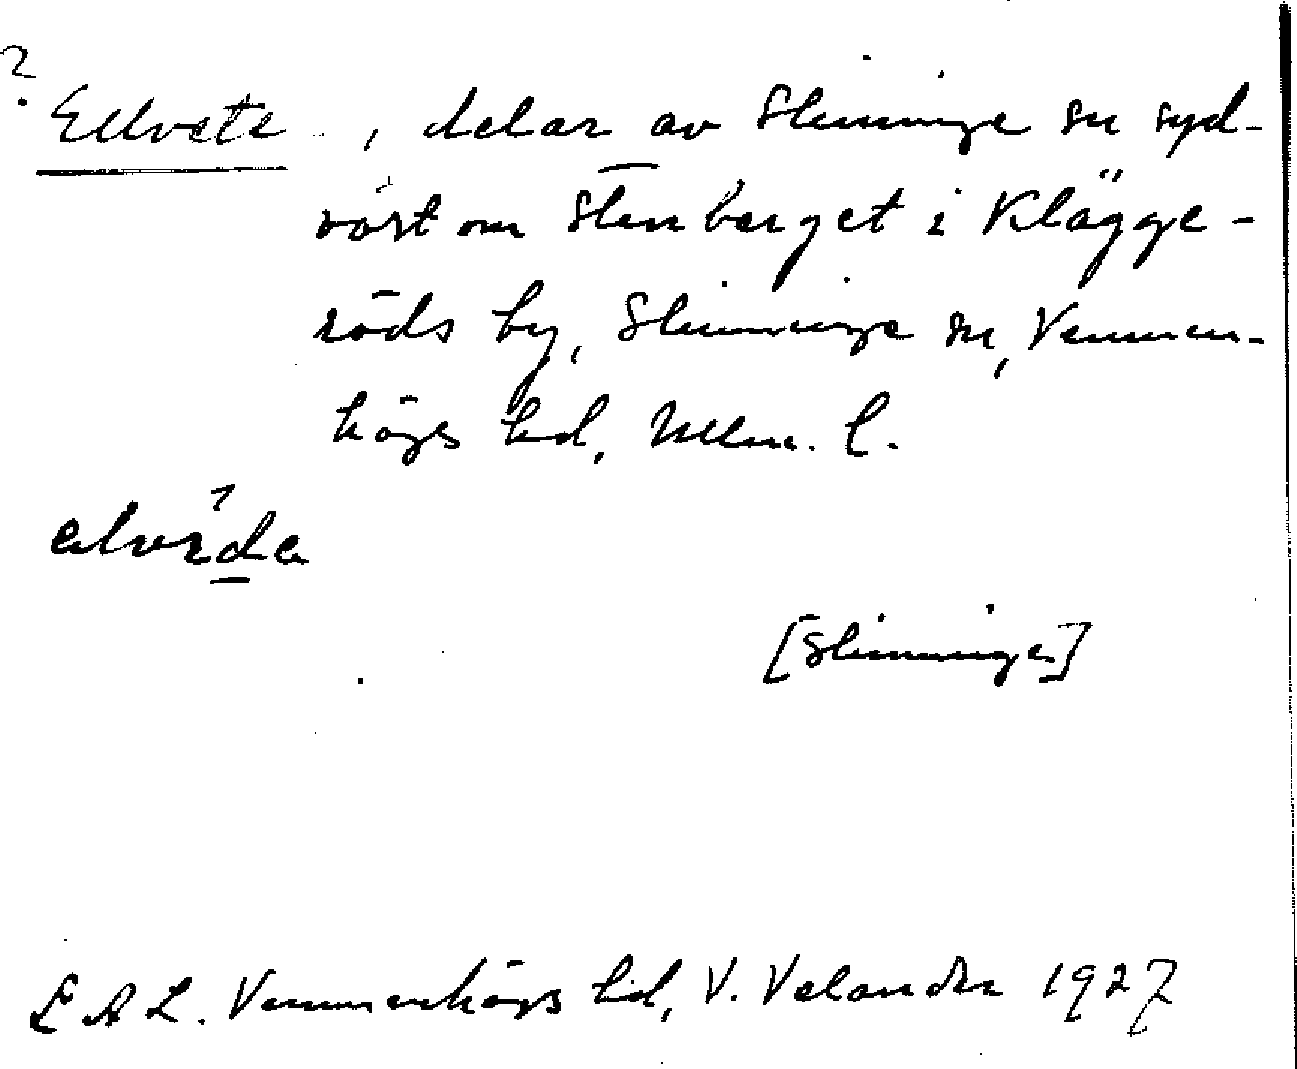 ?
Ellvete , delar av Slimminge sn syd-
väst om Stenberget i Klägge-
röds by, Slimminge sn, Vemmen-
högs hd, Mlm. l.
[Slimminge]
L A L. Vemmenhögs hd, V. Velander 1927